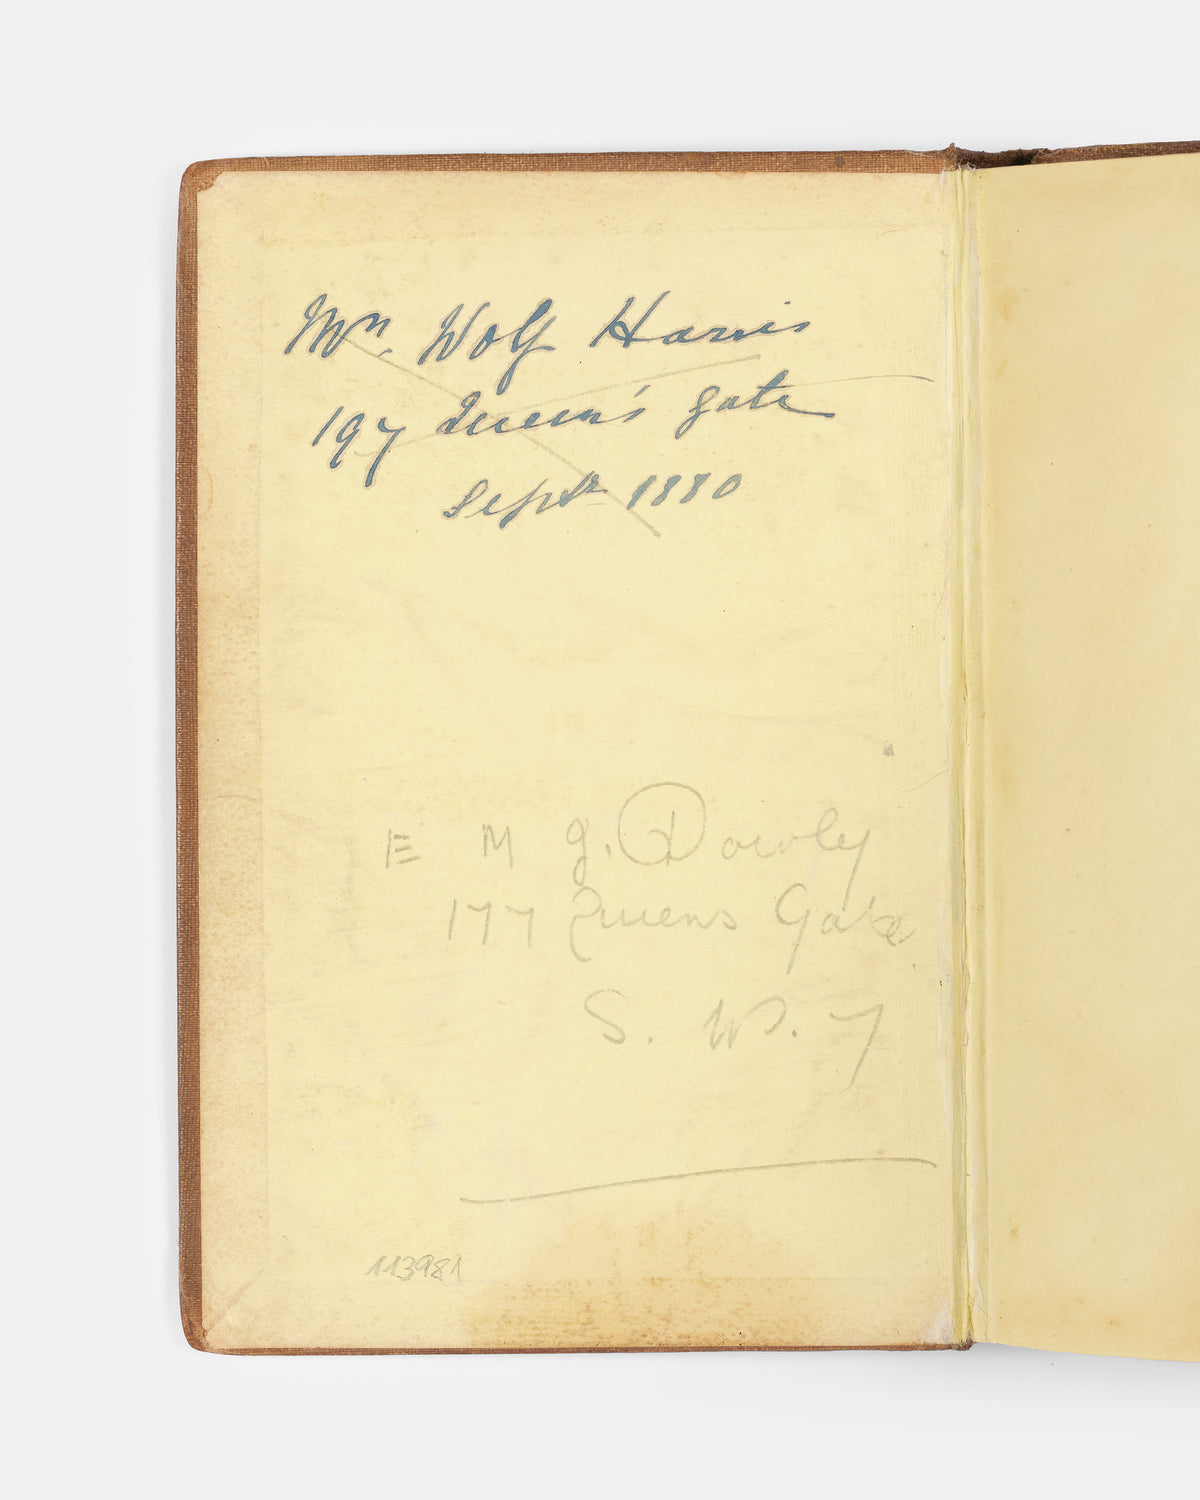 Mrs. Wolf Harris
197 Queen's Gate
Septr 1880
E M G. Dowley
177 Queens Gate.
S. W. 7
113981